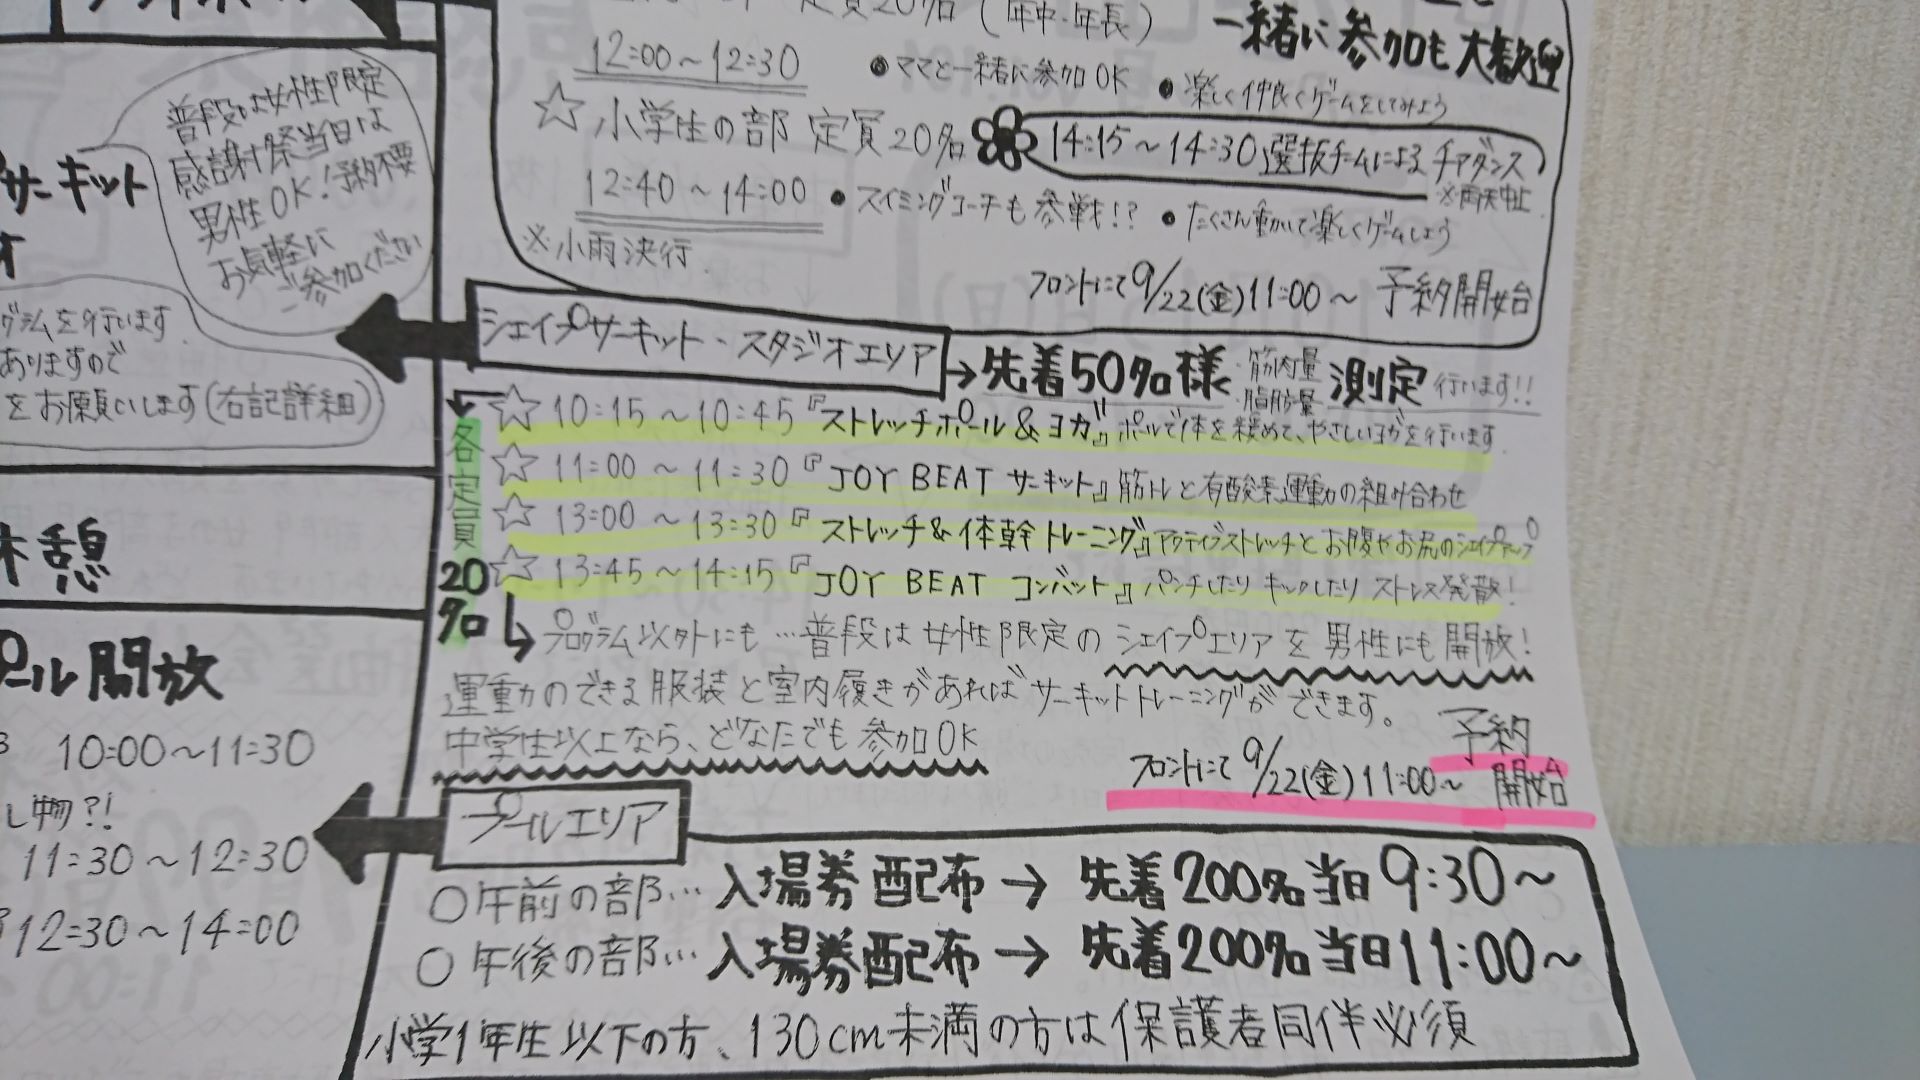 定員20名(年中・年長)
一緒に参加も大歓迎
12:00～12:30
●ママと一緒に参加OK
●楽しく仲良くゲームをしてみよう
☆小学生の部 定員20名
14:15～14:30選抜チームによるチアダンス
※雨天中止
12:40～14:00
●スイミングコーチも参戦!?
●たくさん動いて楽しくゲームしよう
※小雨決行
フロントにて9/22(金)11:00～ 予約開始
普段は女性限定
感謝祭当日は
男性OK!予約不要
お気軽に
ご参加ください
サーキット
オ
グラムを行います
ありますので
をお願いします(右記詳細)
休憩
プール開放
10:00～11:30
し物?!
11:30～12:30
12:30～14:00
シェイプサーキット・スタジオエリア
→先着50名様 ・筋肉量 ・脂肪量 測定 行います!!
各定員20名
☆10:15～10:45『ストレッチポール&ヨガ』ポールで体を緩めて、やさしいヨガを行います
☆11:00～11:30『JOY BEAT サーキット』筋トレと有酸素運動の組み合わせ
☆13:00～13:30『ストレッチ&体幹トレーニング』アクティブストレッチとお腹やお尻のシェイプアップ
☆13:45～14:15『JOY BEAT コンバット』パンチしたりキックしたりストレス発散!
プログラム以外にも…普段は女性限定のシェイプエリアを男性にも開放!
運動のできる服装と室内履きがあればサーキットトレーニングができます。
中学生以上なら、どなたでも参加OK
フロントにて9/22(金)11:00～ 予約開始
プールエリア
○午前の部…入場券配布→先着200名当日9:30～
○午後の部…入場券配布→先着200名当日11:00～
小学1年生以下の方、130cm未満の方は保護者同伴必須